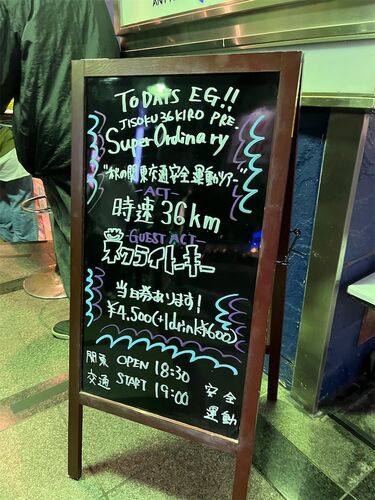 TODAYS EG.!!
JISOKU36KIRO PRE.
SuperOrdinary
"秋の関東交通安全運動ツアー"
-ACT-
時速36km
-GUEST ACT-
ネクライトーキー
当日券あります!
¥4,500(+1drink¥600)
関東 OPEN 18:30 安全
交通 START 19:00 運動